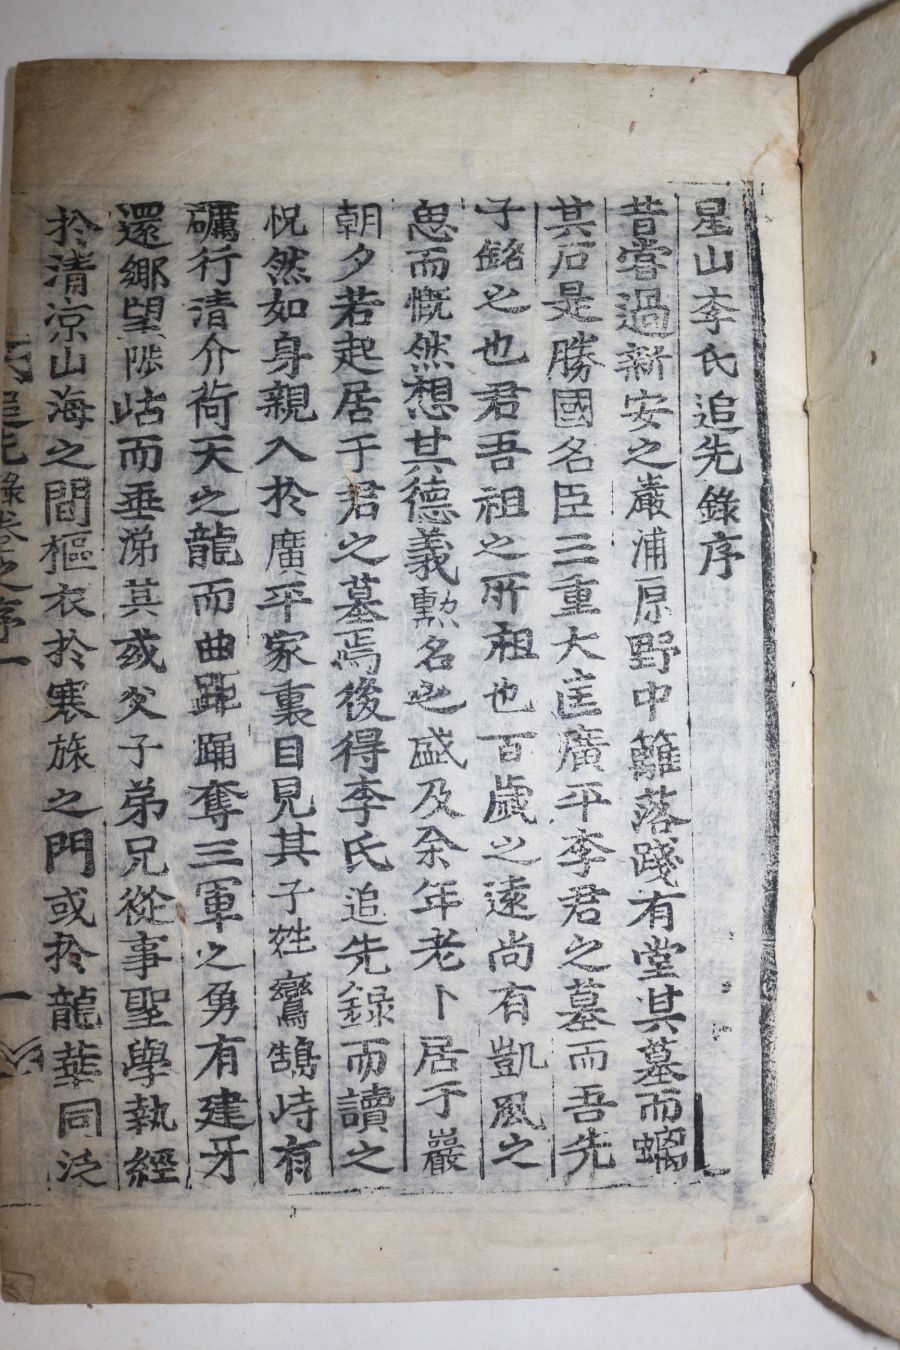 星山李氏追先錄序
昔嘗過新安之巖浦原野中籬落踐有堂其墓而螭
其石是勝國名臣三重大匡廣平李君之墓而吾先
子銘之也君吾祖之所祖也百歲之遠尚有凱風之
思而慨然想其德義勳名之盛及余年老卜居于巖
朝夕若起居于君之墓焉後得李氏追先錄而讀之
怳然如身親入於廣平家裏目見其子姓鸞鵠峙有
礪行清介荷天之龍而曲踊距踊奪三軍之勇有建牙
還鄉望陟岵而垂涕其或父子弟兄從事聖學執經
於清凉山海之間樞衣於寒旅之門或於龍華同泛
追先錄卷之序 一